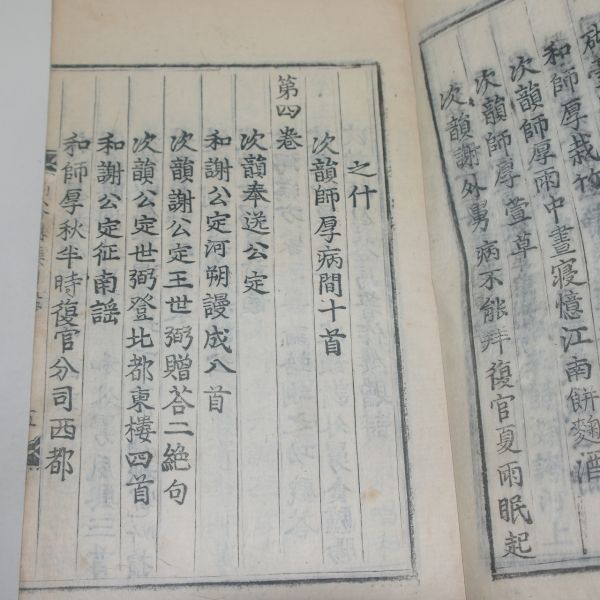 和師厚栽竹
次韻師厚雨中晝寢憶江南餅麴酒
次韻師厚萱草
次韻謝外舅病不能拜復官夏雨眠起
之什
次韻師厚病間十首
第四卷
次韻奉送公定
和謝公定河朔謾成八首
次韻謝公定王世弼贈荅二絶句
次韻公定世弼登北都東樓四首
和謝公定征南謡
和師厚秋半時復官分司西都